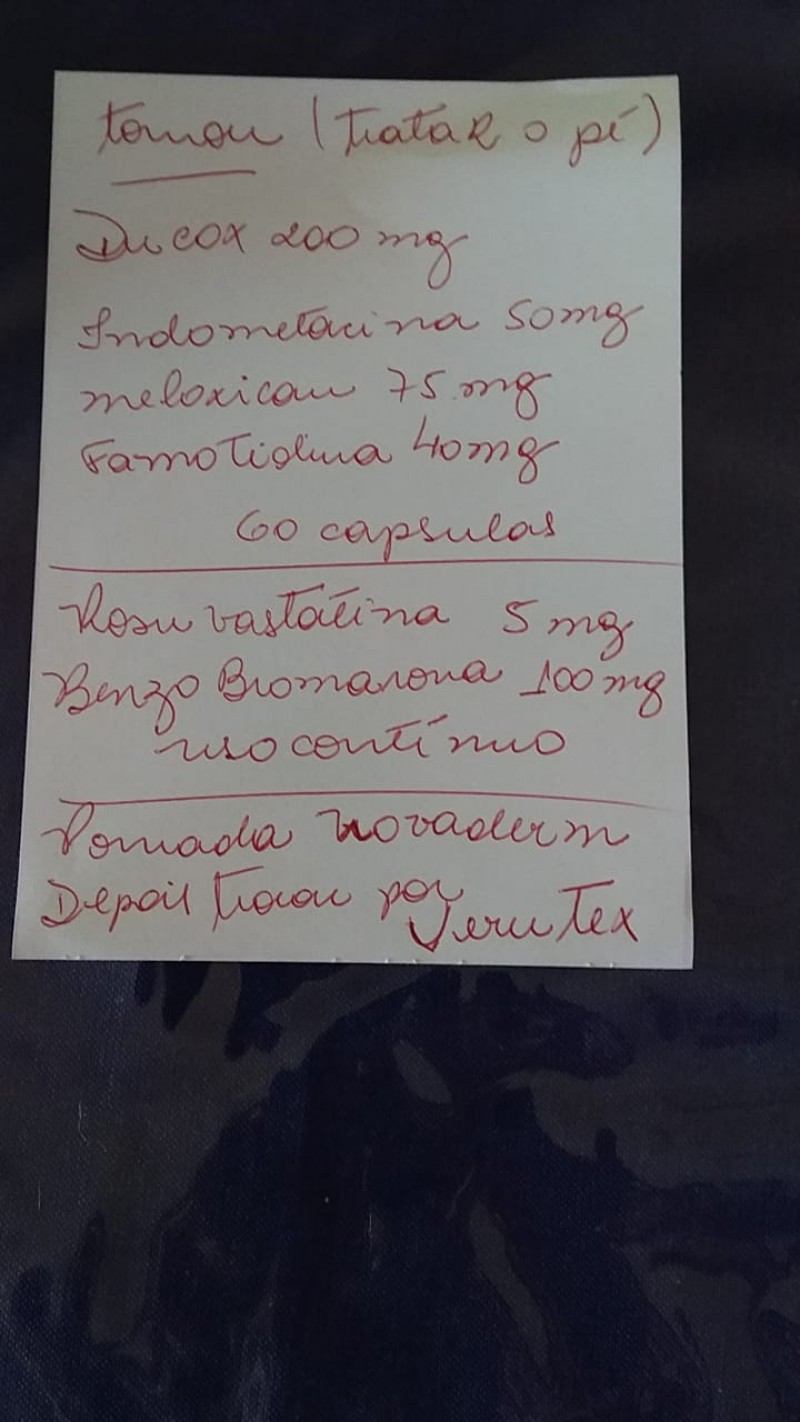 tomou (tratar o pé)
Ducox 200 mg
Indometacina 50mg
meloxicam 75 mg
Famotidina 40mg
60 capsulas
Rosuvastatina 5 mg
BenzoBromarona 100mg
uso contínuo
Pomada novaderm
Depois trocou por
VeruTex